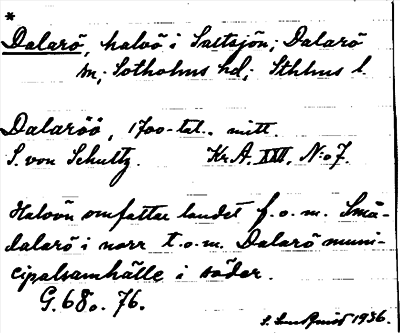 *
Dalarö, halvö i Saltsjön; Dalarö
sn; Sotholms hd; Sthlms l.
Dalaröö, 1700-tal., mitt.
S. von Schultz. Kr.A. XXII, N:o 7.
Halvön omfattar landet f.o.m. Små-
dalarö i norr t.o.m. Dalarö muni-
cipalsamhälle i söder.
G. 68o. 76.
1936.